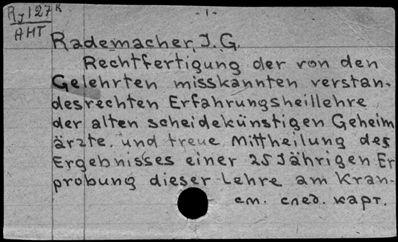 Rj 127 R
- 1 -
AHT
Rademacher, J. G.
Rechtfertigung der von den
Gelehrten misskannten verstan-
desrechten Erfahrungsheillehre
der alten scheidekünstigen Geheim
ärzte. und treue Mittheilung des
Ergebnisses einer 25 Jährigen Er
probung dieser Lehre am Kran-
см. след. карт.